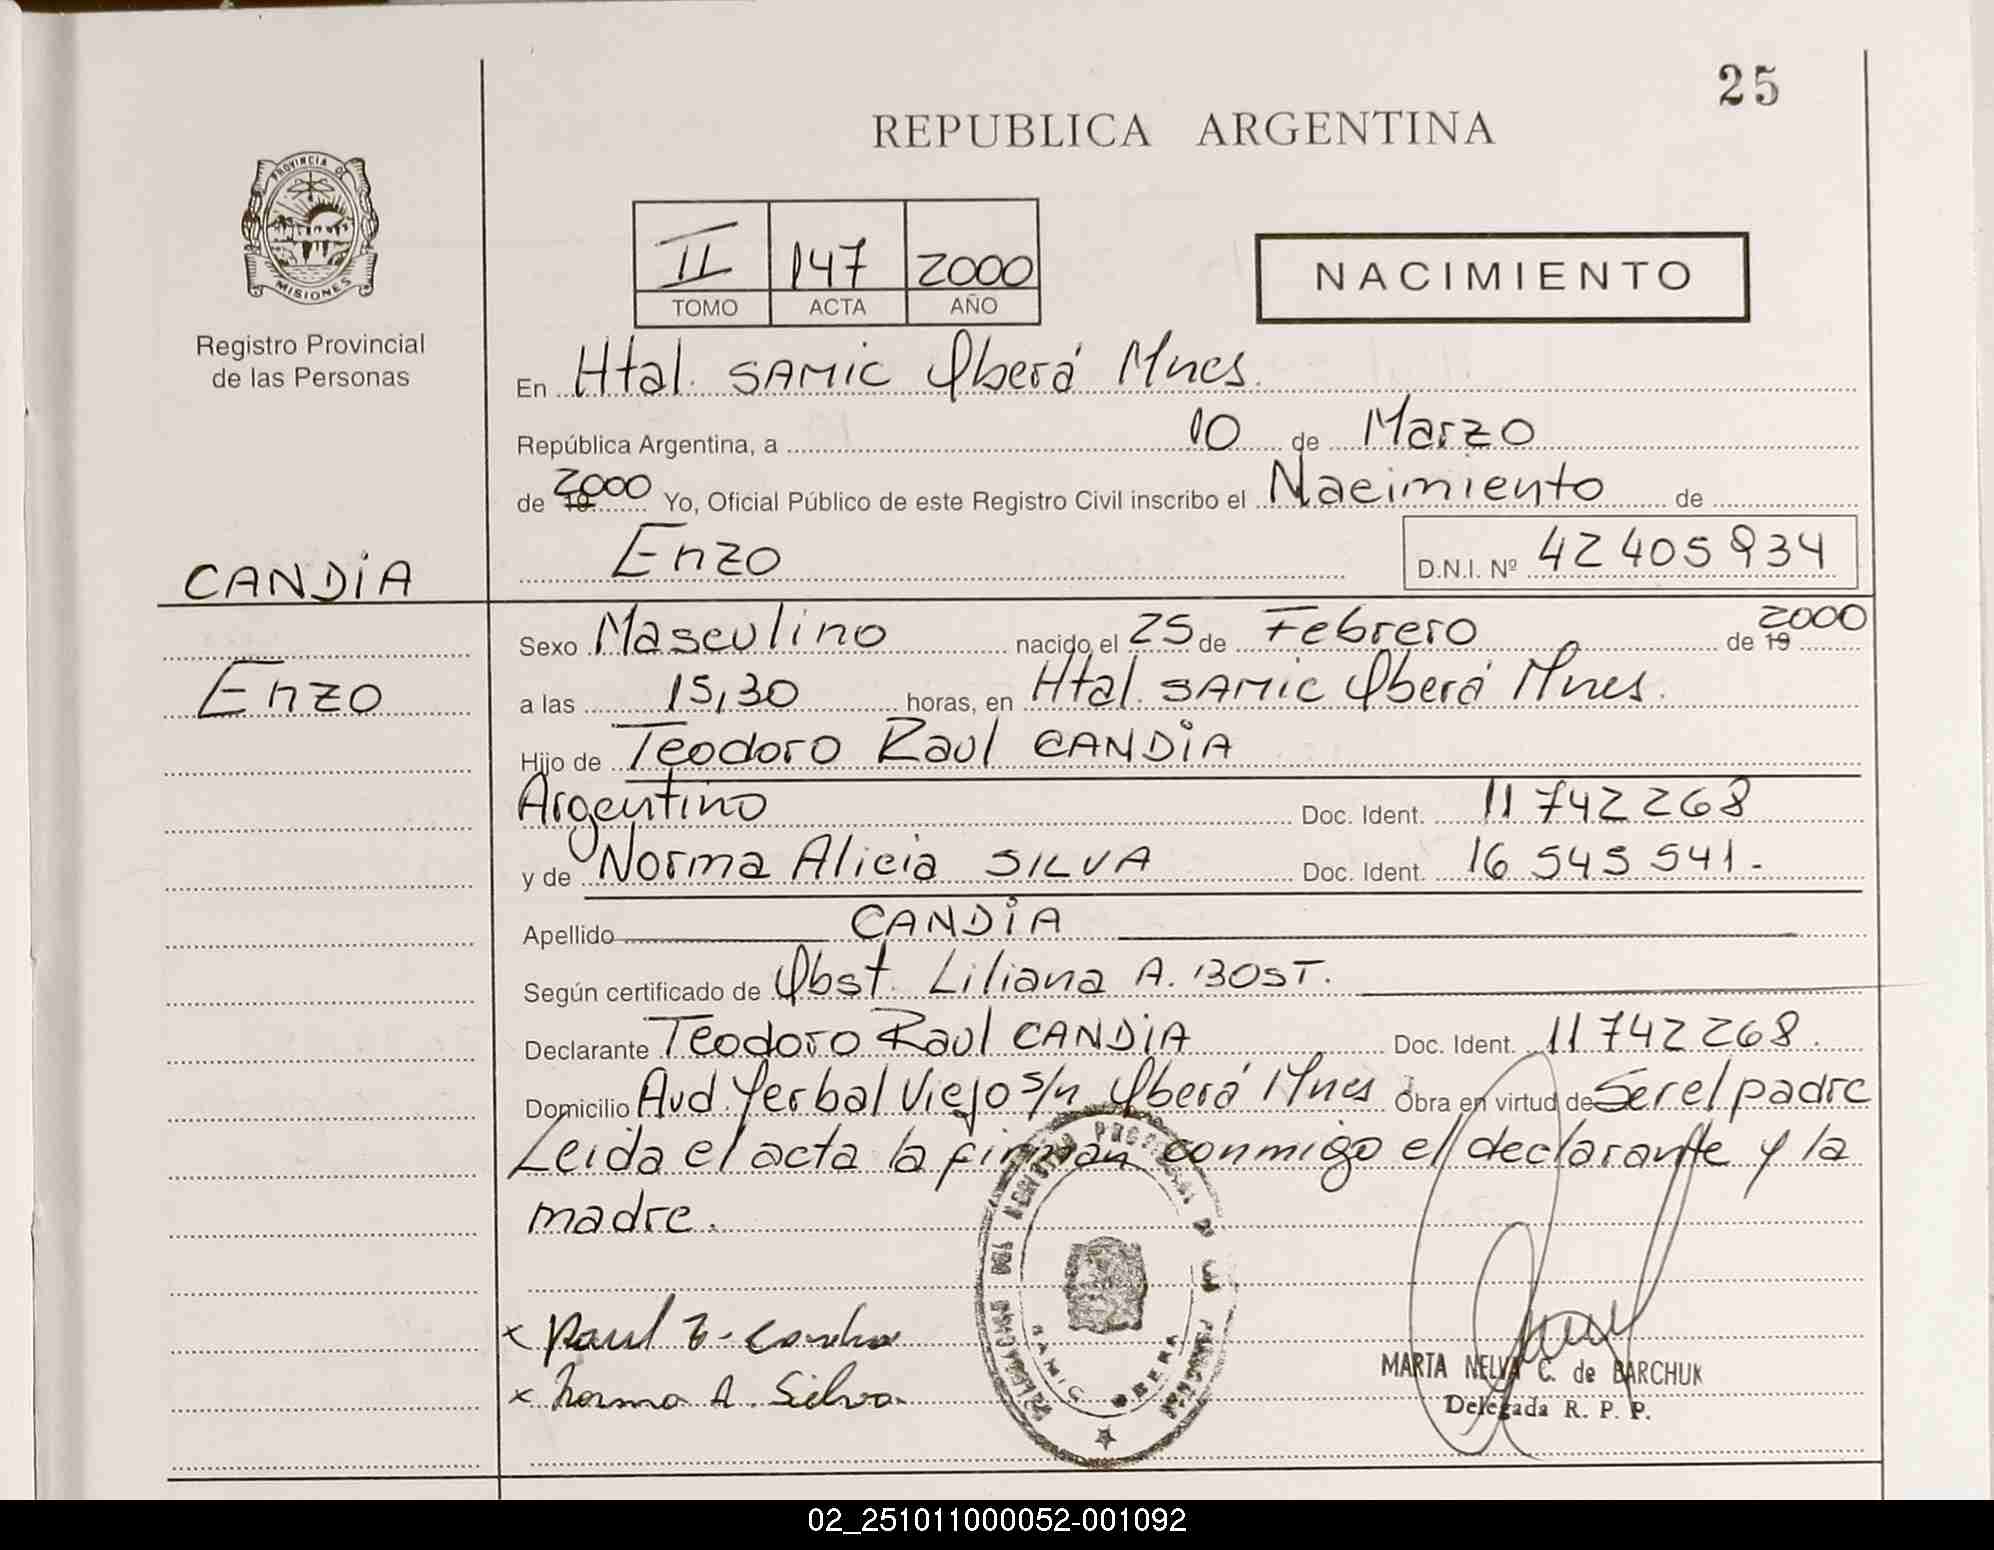 25
REPUBLICA ARGENTINA
PROVINCIA DE
MISIONES
Registro Provincial
de las Personas
II 147 2000
TOMO ACTA AÑO
NACIMIENTO
En Htal. SAMIC Oberá Mnes.
República Argentina, a 10 de Marzo
de 2000 19 Yo, Oficial Público de este Registro Civil inscribo el Nacimiento de
Enzo D.N.I. Nº 42 405 934
CANDiA
Enzo
Sexo Masculino nacido el 25 de Febrero de 19 2000
a las 15,30 horas, en Htal. SAMIC Oberá Mnes.
Hijo de Teodoro Raul CANDiA
Argentino Doc. Ident. 11 742 268
y de Norma Alicia SILVA Doc. Ident. 16 545 541.-
Apellido CANDiA
Según certificado de Obst. Liliana A. BOST.
Declarante Teodoro Raul CANDiA Doc. Ident. 11 742 268.
Domicilio Avd. Yerbal Viejo s/n Oberá Mnes Obra en virtud de Ser el padre
Leida el acta la firman conmigo el declarante y la
madre.
x Raul T- Candia
x Norma A. Silva.
SAMIC OBERA
MARTA NELVA C. de BARCHUK
Delegada R. P. P.
02_251011000052-001092